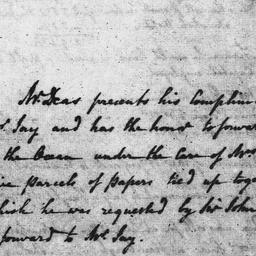 Mr. Deas presents his Complim
Jay and has the honor to forwa
the Ocean under the Care of Mr
Parcels of Papers tied up toge
which he was requested by Sir John
forward to Mr. Jay.